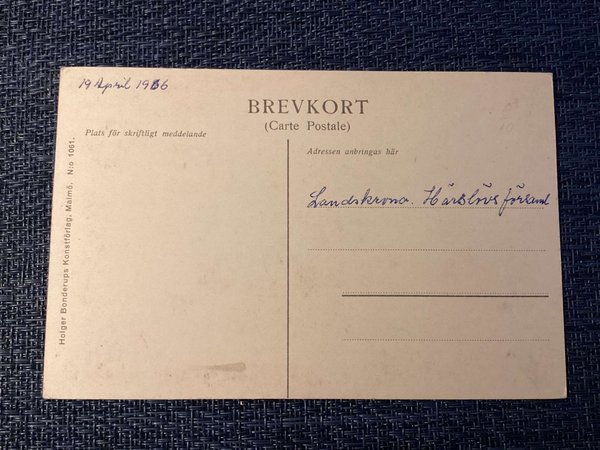 19 April 1916
BREVKORT
(Carte Postale)
Plats för skriftligt meddelande
Adressen anbringas här
Landskrona. Härslövs församl
Holger Bonderups Konstförlag, Malmö, N:o 1061.